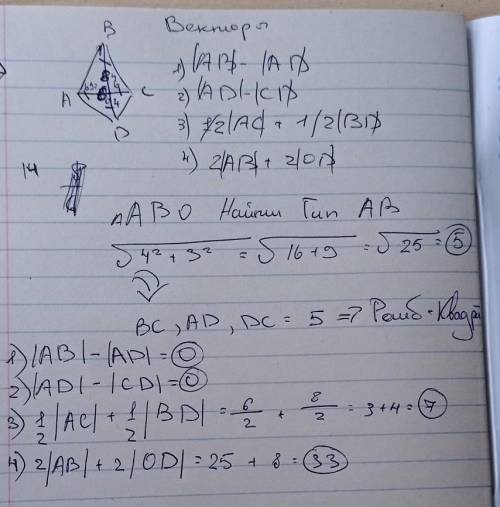 B
Векторы
A
C
D
1) |AB| - |AD|
2) |AD| - |CD|
3) 1/2|AC| + 1/2|BD|
4) 2|AB| + 2|OD|
△ABO Найти Гип AB
√4² + 3² = √16 + 9 = √25 = 5
BC, AD, DC = 5 => Ромб - Квадр
1) |AB| - |AD| = 0
2) |AD| - |CD| = 0
3) 1/2|AC| + 1/2|BD| = 6/2 + 8/2 = 3+4 = 7
4) 2|AB| + 2|OD| = 25 + 8 = 33